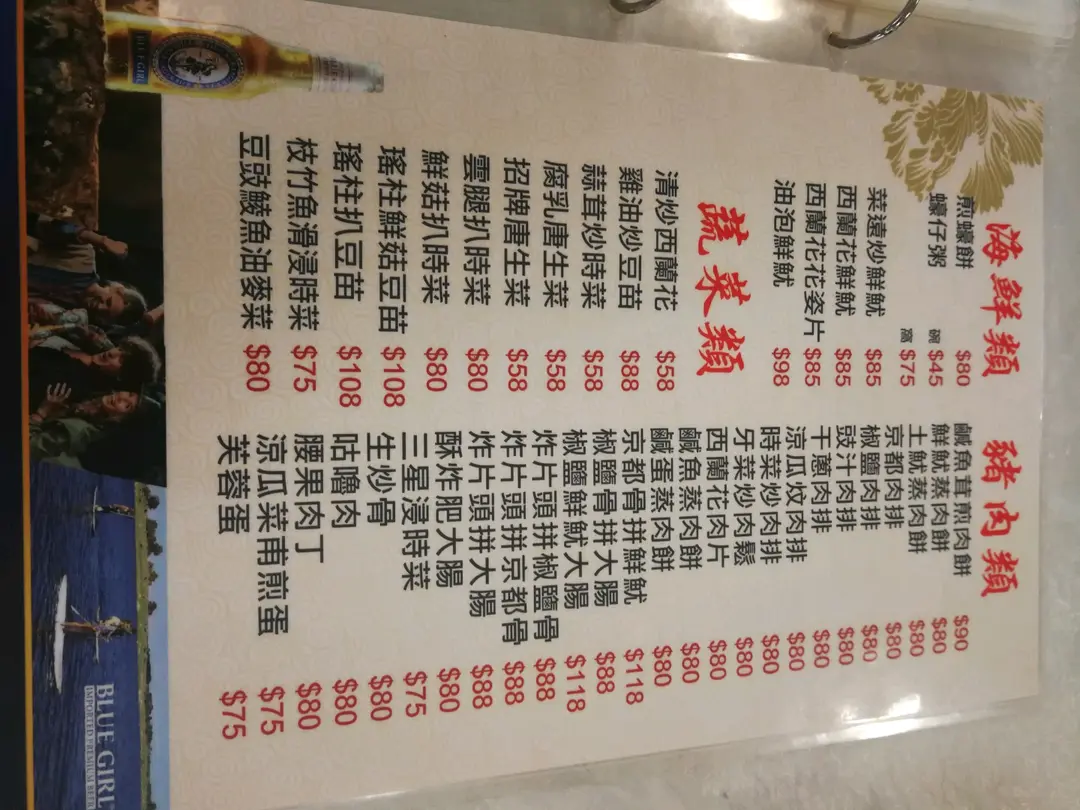 海鮮類
煎蠔餅 $80
蠔仔粥 碗 $45
窩 $75
菜遠炒鮮魷 $85
西蘭花鮮魷 $85
西蘭花花姿片 $85
油泡鮮魷 $98
蔬菜類
清炒西蘭花 $58
雞油炒豆苗 $88
蒜茸炒時菜 $58
腐乳唐生菜 $58
招牌唐生菜 $58
雲腿扒時菜 $80
鮮菇扒時菜 $80
瑤柱鮮菇豆苗 $108
瑤柱扒豆苗 $108
枝竹魚滑浸時菜 $75
豆豉鯪魚油麥菜 $80
豬肉類
鹹魚茸煎肉餅 $90
鮮魷蒸肉餅 $80
土魷蒸肉餅 $80
京都肉排 $80
椒鹽肉排 $80
豉汁肉排 $80
干蔥肉排 $80
涼瓜炆肉排 $80
時菜炒肉排 $80
牙菜炒肉鬆 $80
西蘭花肉片 $80
鹹魚蒸肉餅 $80
鹹蛋蒸肉餅 $80
京都骨拼鮮魷 $118
椒鹽骨拼大腸 $88
椒鹽鮮魷大腸 $118
炸片頭拼椒鹽骨 $88
炸片頭拼京都骨 $88
炸片頭拼大腸 $88
酥炸肥大腸 $80
三星浸時菜 $75
生炒骨 $80
咕嚕肉 $80
腰果肉丁 $80
涼瓜菜甫煎蛋 $75
芙蓉蛋 $75
BLUE GIRL
BLUE GIRL
IMPORTED PREMIUM BEER